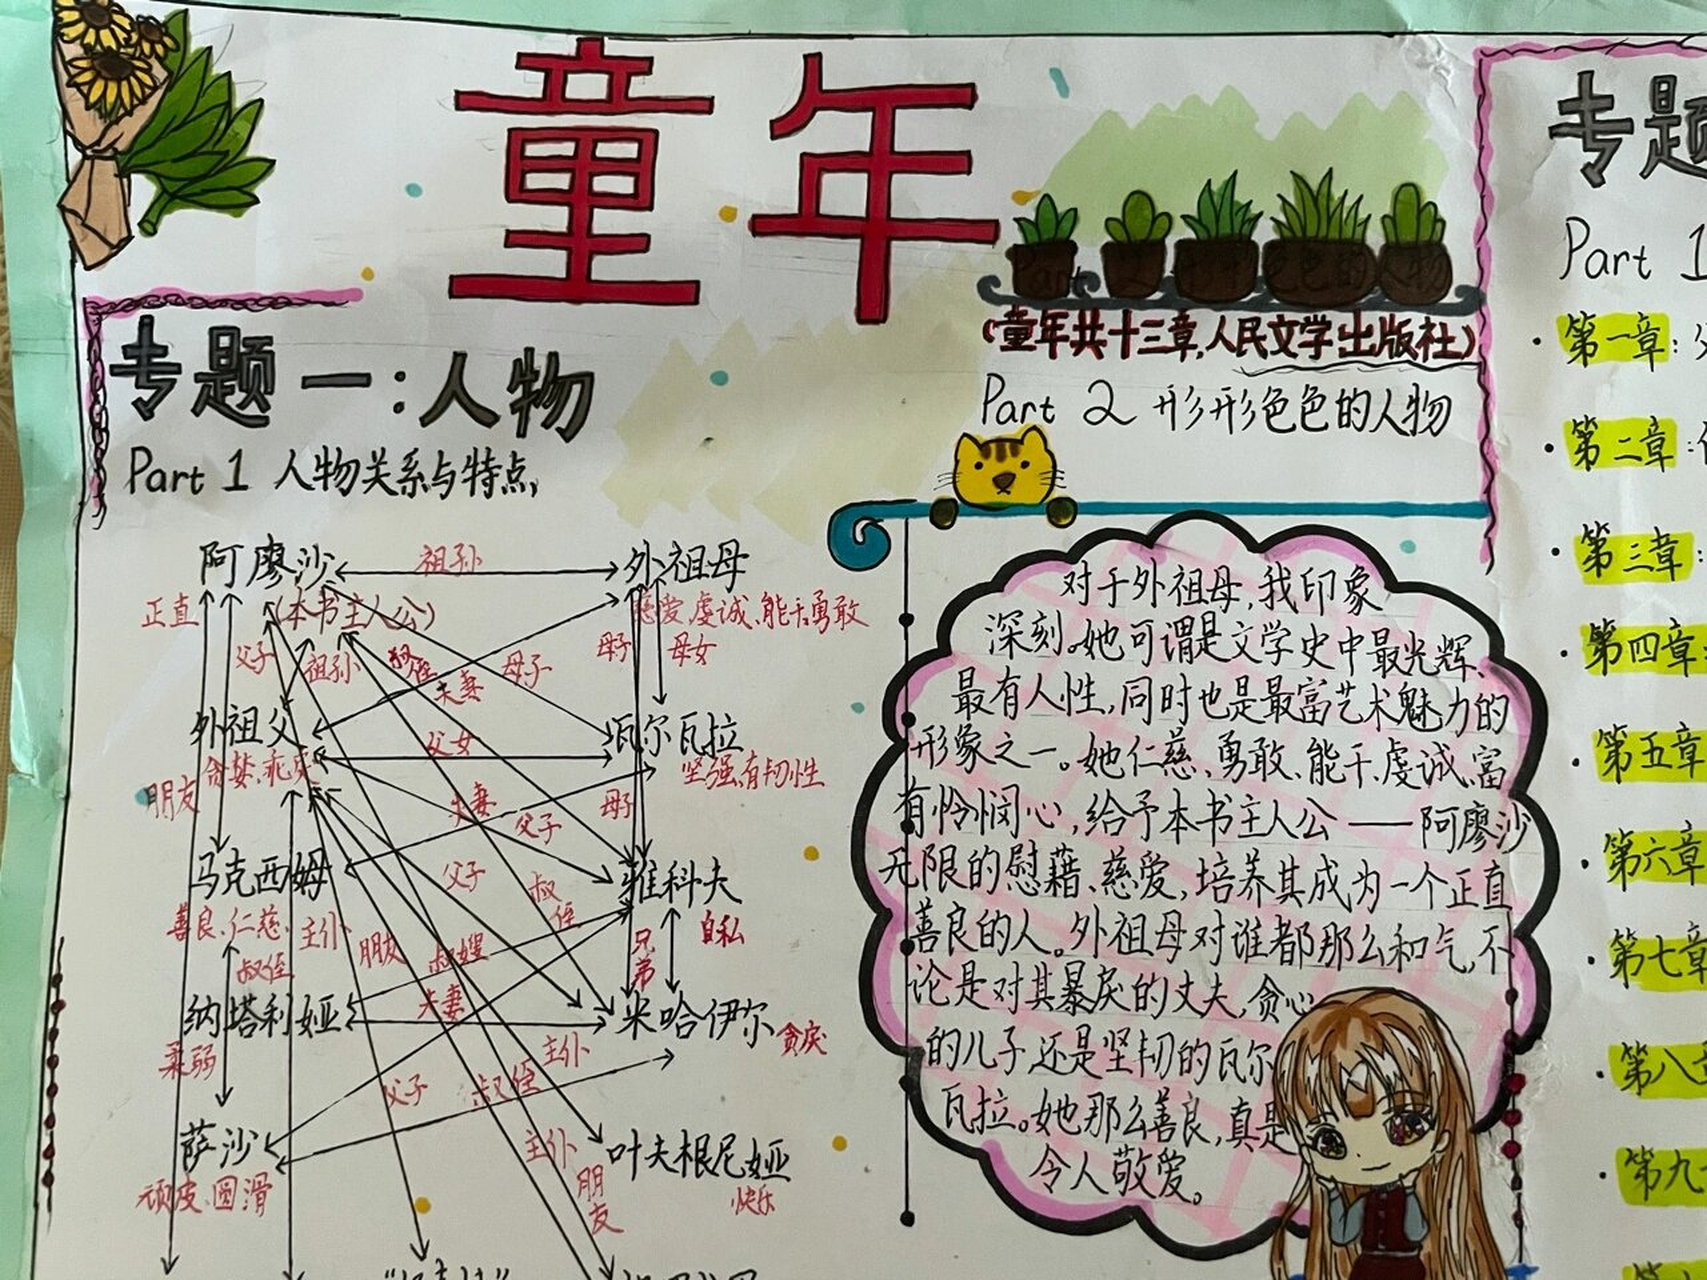 童年
(童年共十三章,人民文学出版社)
专题一:人物
Part 1 人物关系与特点
阿廖沙
祖孙
外祖母
正直
(本书主人公)
慈爱、虔诚、能干、勇敢
父子
祖孙
叔侄
夫妻
母子
母子
母女
外祖父
父女
瓦尔瓦拉
贪婪、乖戾
坚强、有韧性
朋友
夫妻
父子
母子
马克西姆
父子
叔侄
雅科夫
善良、仁慈
主仆
朋友
叔嫂
兄弟
自私
叔侄
纳塔利娅
夫妻
米哈伊尔
贪戾
柔弱
主仆
父子
叔侄
萨沙
主仆
叶夫根尼娅
顽皮、圆滑
朋友
快乐
Part 2 形形色色的人物
对于外祖母,我印象
深刻。她可谓是文学史中最光辉、
最有人性,同时也是最富艺术魅力的
形象之一。她仁慈、勇敢、能干、虔诚、富
有怜悯心,给予本书主人公——阿廖沙
无限的慰藉、慈爱,培养其成为一个正直
善良的人。外祖母对谁都那么和气,不
论是对其暴戾的丈夫,贪心
的儿子还是坚韧的瓦尔
瓦拉。她那么善良,真是
令人敬爱。
专题
Part 1
第一章:
第二章:
第三章:
第四章:
第五章
第六章
第七章
第八章
第九